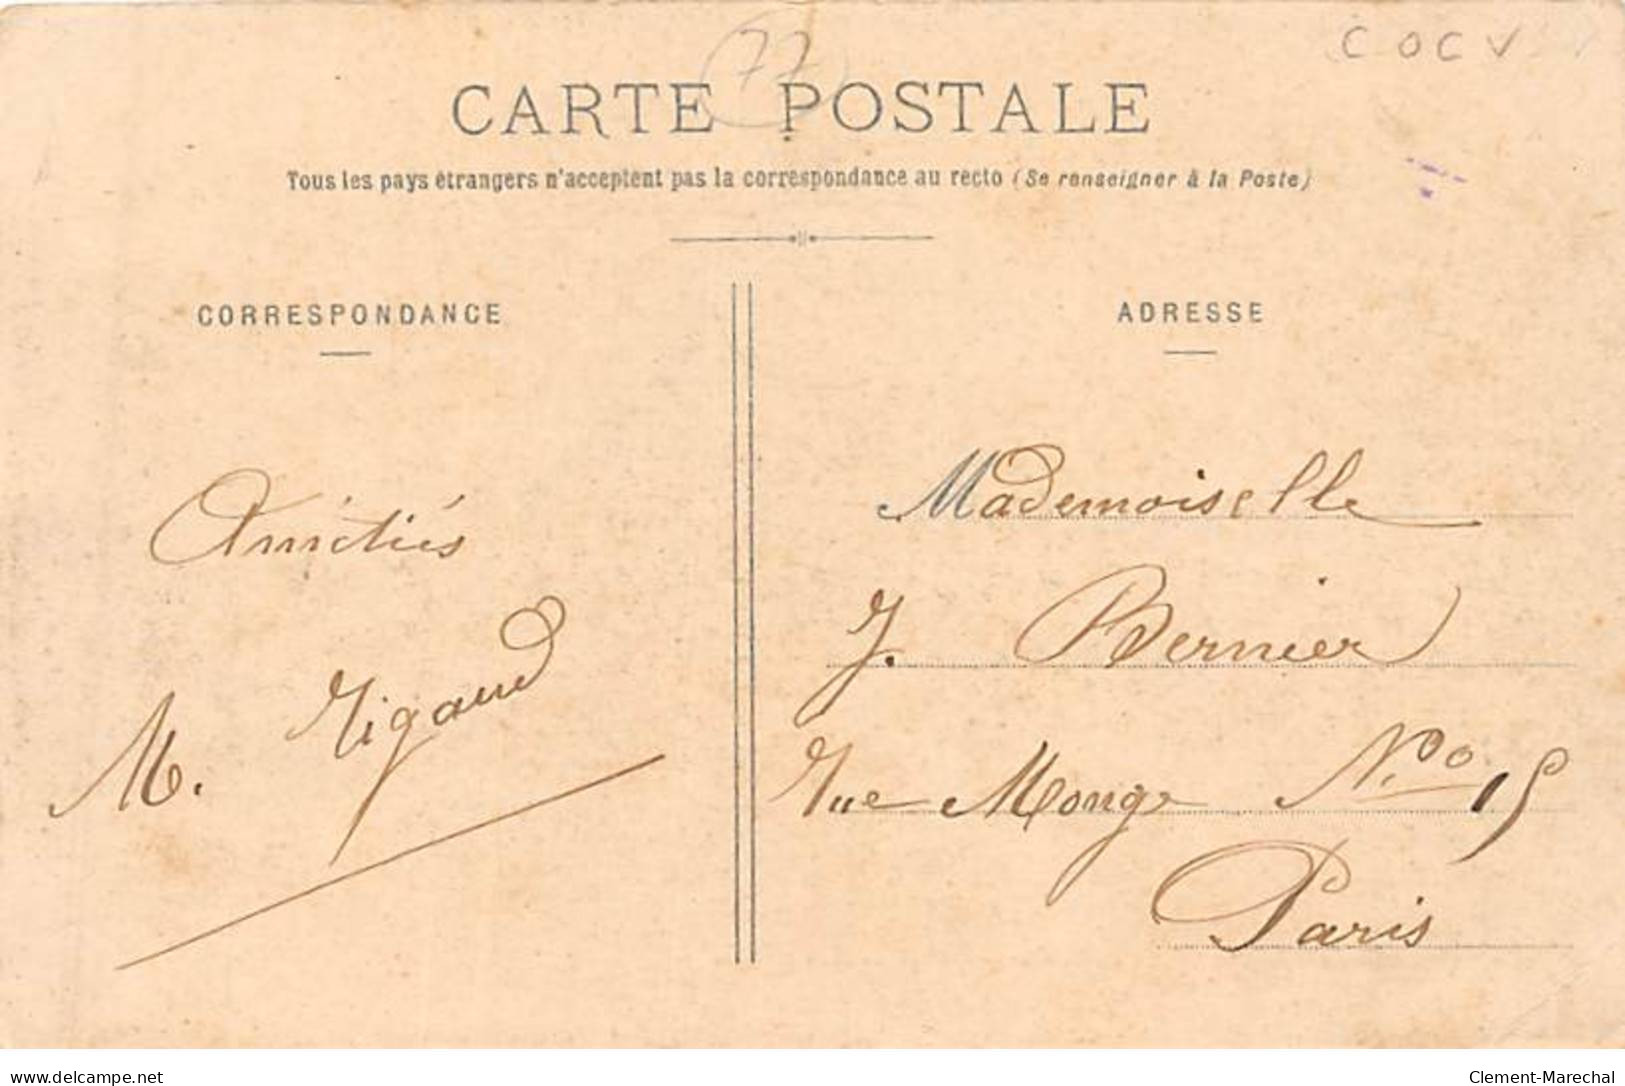 77
C O C V
CARTE POSTALE
Tous les pays étrangers n'acceptent pas la correspondance au recto (Se renseigner à la Poste)
CORRESPONDANCE
ADRESSE
Amitiés
M. Rigaud
Mademoiselle
J. Bernier
Rue Monge No. 15
Paris
www.delcampe.net
Clement-Marechal